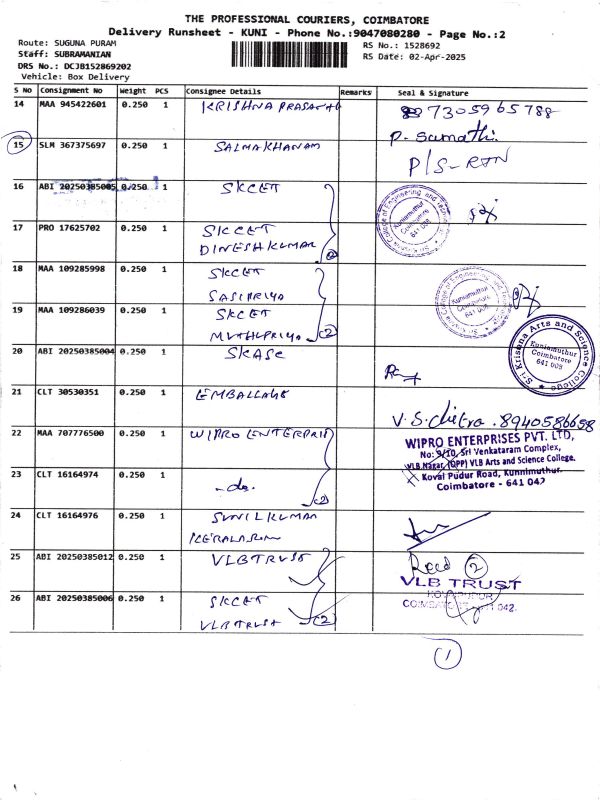 THE PROFESSIONAL COURIERS, COIMBATORE
Delivery Runsheet - KUNI - Phone No.:9047080280 - Page No.:2
Route: SUGUNA PURAM
RS No.: 1528692
Staff: SUBRAMANIAN
RS Date: 02-Apr-2025
DRS No.: DCJB152869202
Vehicle: Box Delivery
S No Consignment No Weight PCS Consignee Details Remarks Seal & Signature
14 MAA 945422601 0.250 1 KRISHNA PRASATH 7305965788
P. Sumathi.
15 SLM 367375697 0.250 1 SALMAKHANAM
16 ABI 20250385005 0.250 1 SKCET
17 PRO 17625702 0.250 1 SKCET
DINESHKUMAR (2)
18 MAA 109285998 0.250 1 SKCET
SASIPRIYA
19 MAA 109286039 0.250 1 SKCET
MUTHUPRIYA (2)
Sri Krisana Arts and Science College
Kuniamuthur
Coimbatore
641 008
20 ABI 20250385004 0.250 1 SKASC
21 CLT 30530351 0.250 1 EMBALLAGE
V.S.chitra .8940586658
22 MAA 707776500 0.250 1 WIPRO ENTERPRIS
WIPRO ENTERPRISES PVT. LTD,
No: 9/10, Sri Venkataram Complex,
VLB Nagar, (OPP) VLB Arts and Science College.
Kovai Pudur Road, Kunnimuthur.
Coimbatore - 641 042
23 CLT 16164974 0.250 1 -do. (2)
24 CLT 16164976 0.250 1 SUNILKUMAR
25 ABI 20250385012 0.250 1 VLBTRUST
Recd (2)
VLB TRUST
26 ABI 20250385006 0.250 1 SKCET
VLBTRUST (2)
(1)